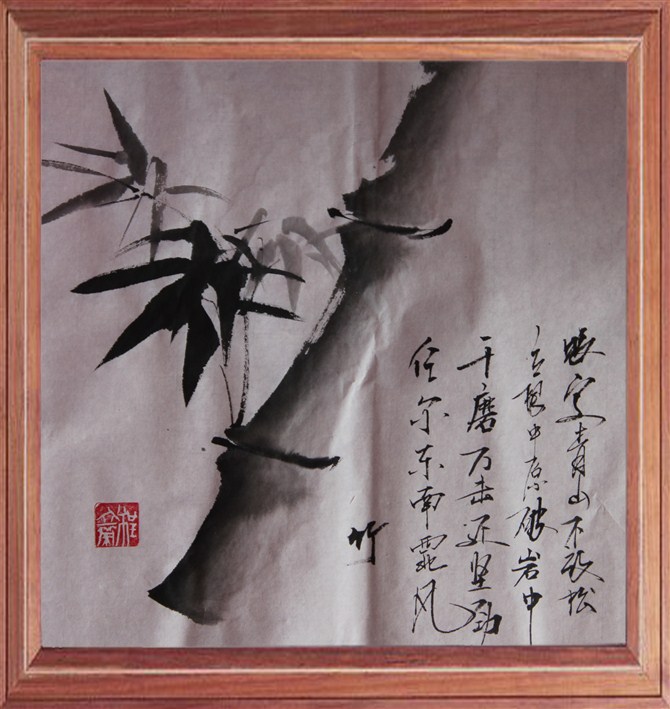 咬定青山不放松
立根中原破岩中
千磨万击还坚劲
任尔东南西北风
竹